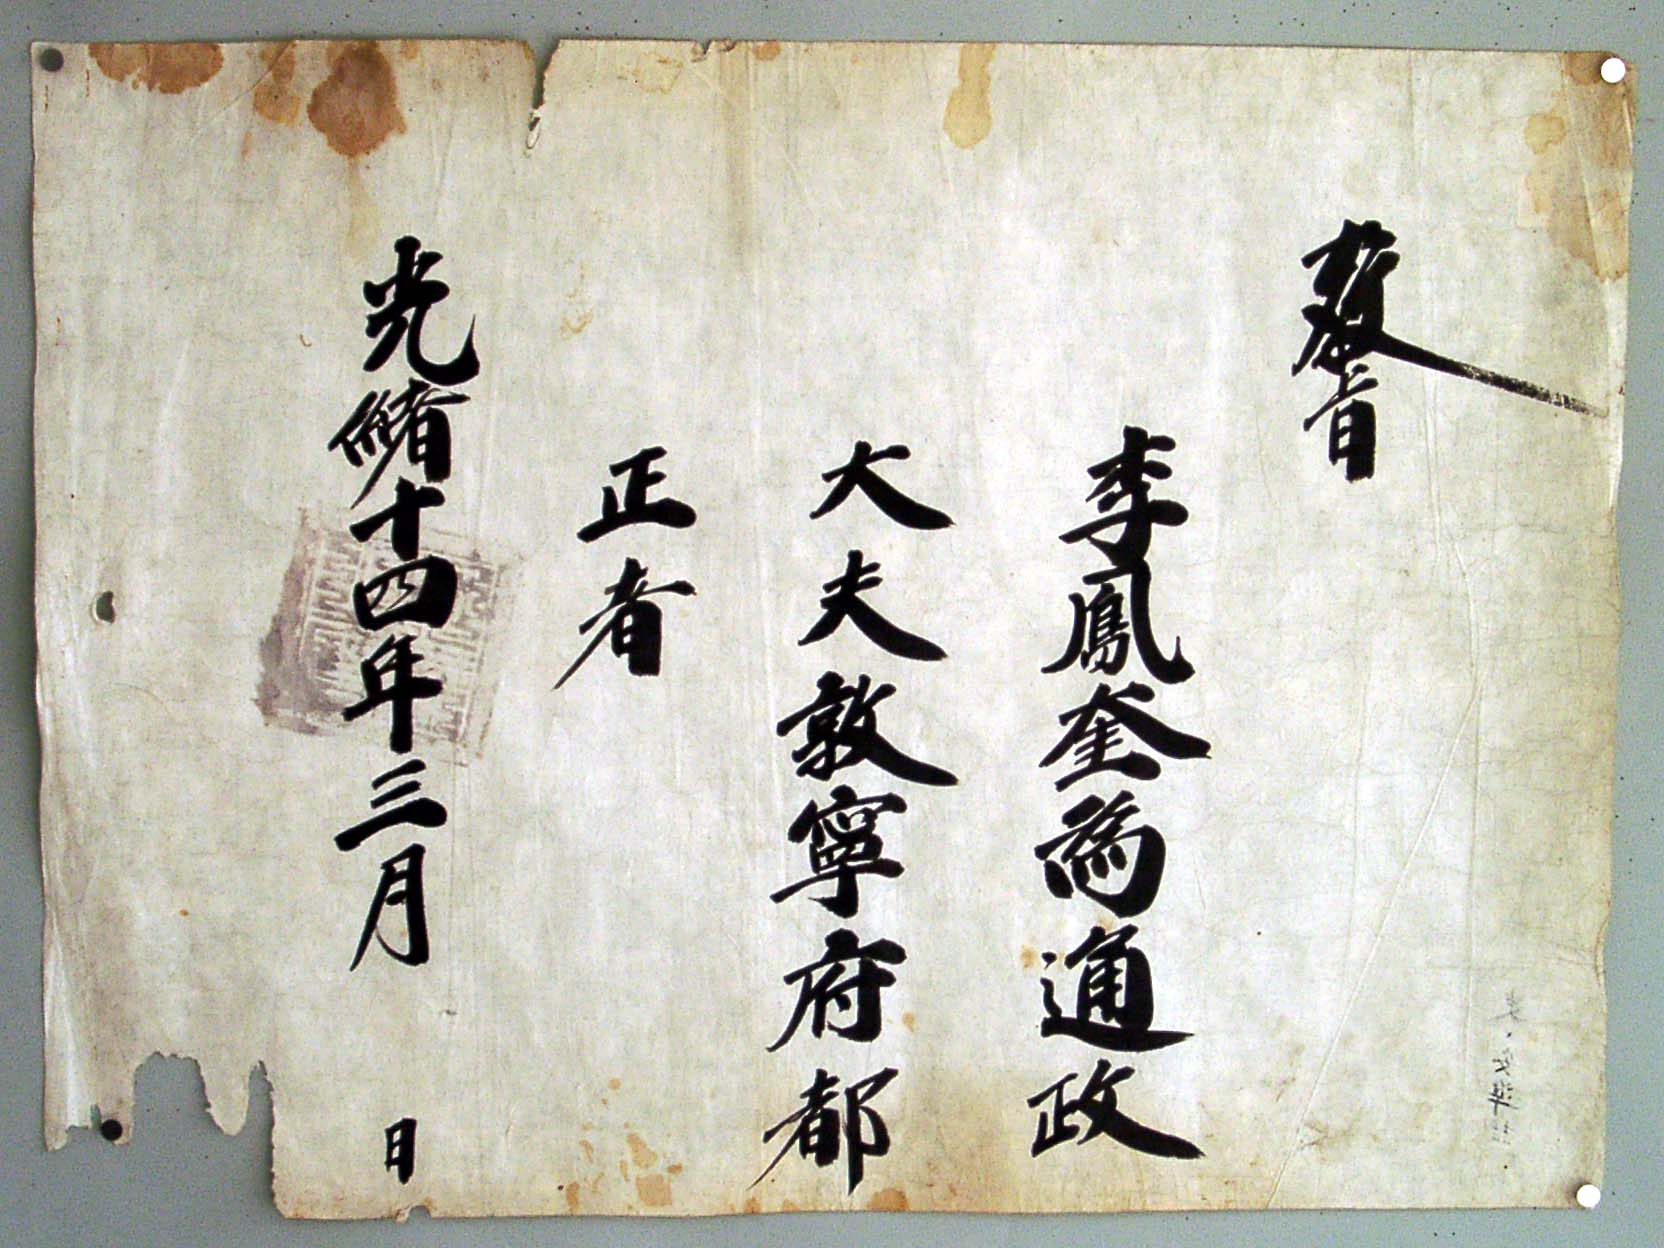 敎旨
李鳳奎爲通政
大夫敦寧府都
正者
光緖十四年三月 日